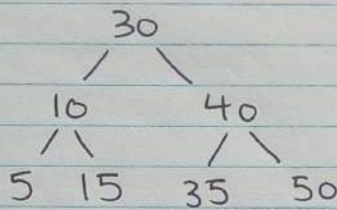 30
10 40
5 15 35 50